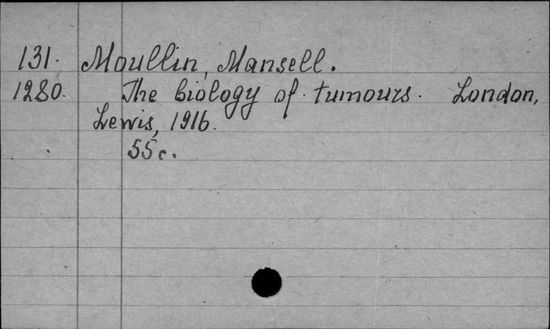 131. Moullin, Mansell.
1280. The biology of tumours. London,
Lewis, 1916.
55c.